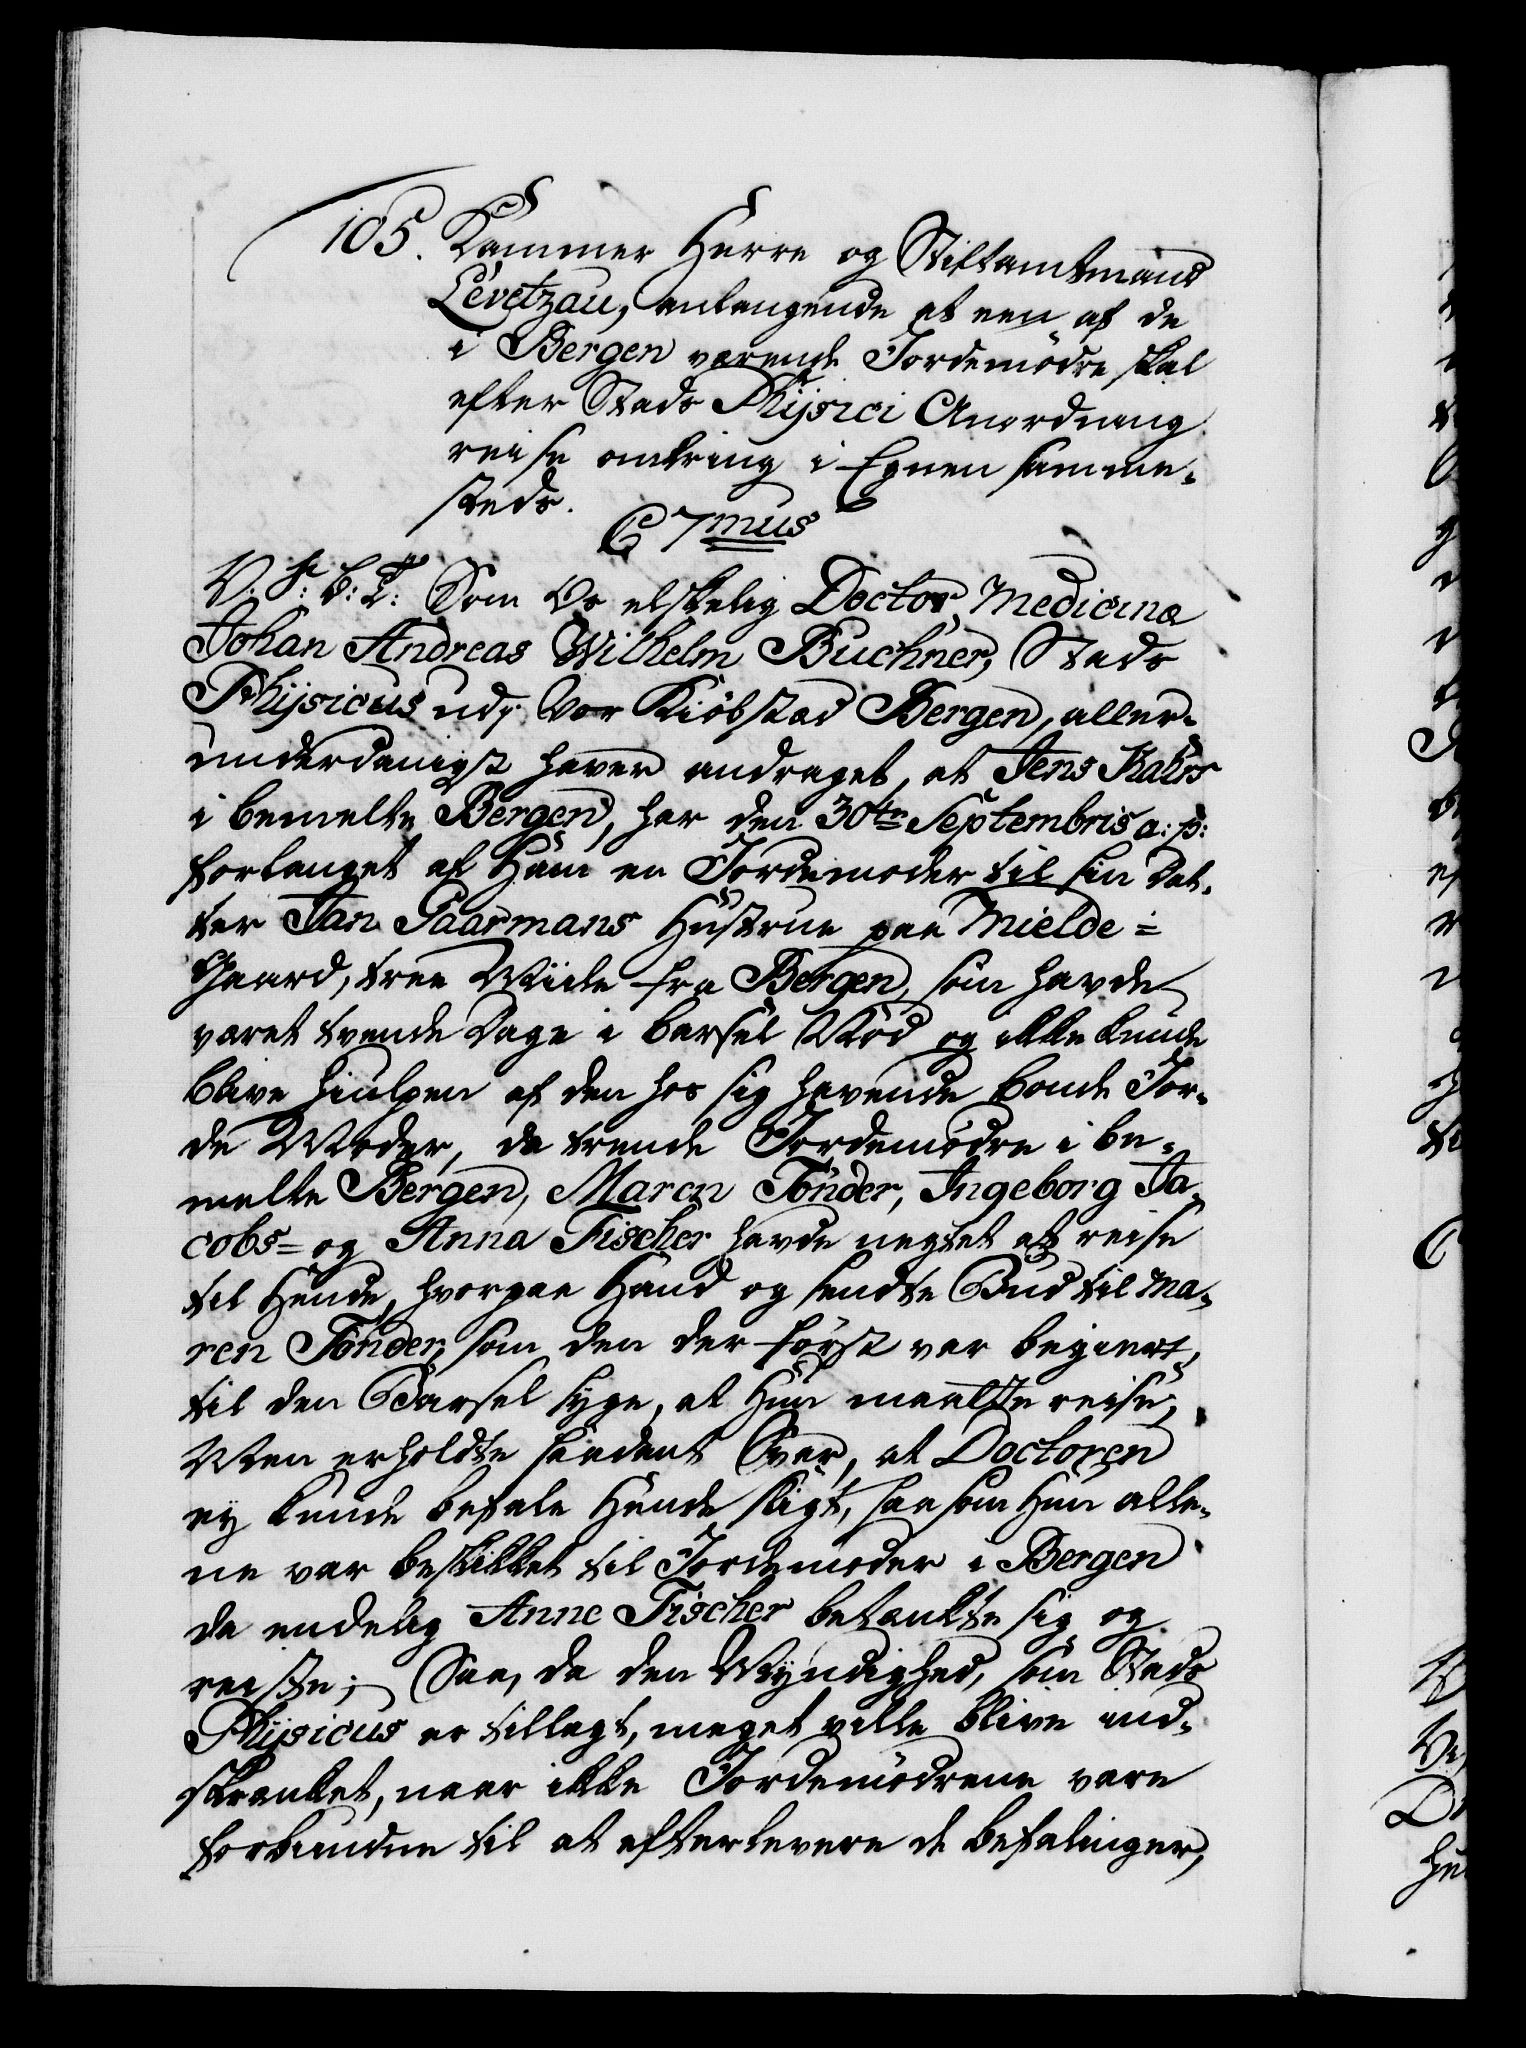 105. Kammer Herre og Stiftamtmand
Levetzau, anlangende at een af de
i Bergen værende Jordemødre skal
efter Stads Physici Anordning
reise omkring i Egnen samme-
steds.
C 7mus
V. S: B: T: Som Os elskelig Doctor Medicinæ
Johan Andreas Wilhelm Büchner, Stads
Physicus udj Vor Kiøbstad Bergen, aller-
underdanigst haver andraget, at Jens Kahrs
i bemelte Bergen, har den 30te Septembris a: p:
forlanget af Ham en Jordemoder til sin Dat-
ter Jan Gaarmans Hustrue paa Mielde=
Gaard, tree Miile fra Bergen, som havde
været tvende Dage i Barsel Nød og ikke kunde
blive hiulpen af den hos sig havende Bonde Jor-
de Moder, da trende Jordemødre i be-
melte Bergen, Maren Tönder, Ingeborg Ja-
cobs= og Anna Fischer havde negtet at reise
til Hende, hvorpaa Hand og sendte Bud til Ma-
ren Tönder, som den der først var begiert,
til den Barsel syge, at Hun maatte reise,
Men erholdte saadant Svar, at Doctoren
ey kunde befale Hende sligt, saasom Hun alle-
ne var beskikket til Jordemoder i Bergen
da endelig Anne Fischer betænkte sig og
reiste; Saa, da den Myndighed, som Stads
Physicus er tillagt, meget ville blive ind-
skrænket, naar ikke Jordemødrene vare
forbundne til at efterlevere de befalinger,